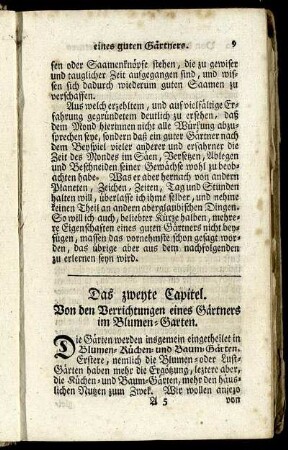 eines guten Gärtners. 9
sen oder Saamenknöpfe stehen, die zu gewiser
und tauglicher Zeit aufgegangen sind, und wis-
sen sich dadurch wiederum guten Saamen zu
verschaffen.
Aus welch erzehltem, und auf vielfältige Er-
fahrung gegründetem deutlich zu ersehen, daß
dem Mond hierinnen nicht alle Würkung abzu-
sprechen seye, sondern daß ein guter Gärtner nach
dem Beyspiel vieler anderer und erfahrner die
Zeit des Mondes im Säen, Versetzen, Ablegen
und Beschneiden seiner Gewächse wohl zu beob-
achten habe. Was er aber hernach von andern
Planeten, Zeichen, Zeiten, Tag und Stunden
halten will, überlasse ich ihme selber, und nehme
keinen Theil an andern abergläubischen Dingen.
So will ich auch, beliebter Kürze halben, mehre-
re Eigenschaften eines guten Gärtners nicht bey-
fügen, massen das vornehmste schon gesagt wor-
den, das übrige aber aus dem nachfolgenden
zu erlernen seyn wird.
Das zweyte Capitel.
Von den Verrichtungen eines Gärtners
im Blumen-Garten.
Die Gärten werden insgemein eingetheilet in
Blumen- Küchen- und Baum-Gärten.
Erstere, nemlich die Blumen- oder Lust-
Gärten haben mehr die Ergötzung, leztere aber,
die Küchen- und Baum-Gärten, mehr den häus-
lichen Nutzen zum Zwek. Wir wollen anjezo
A 5 von